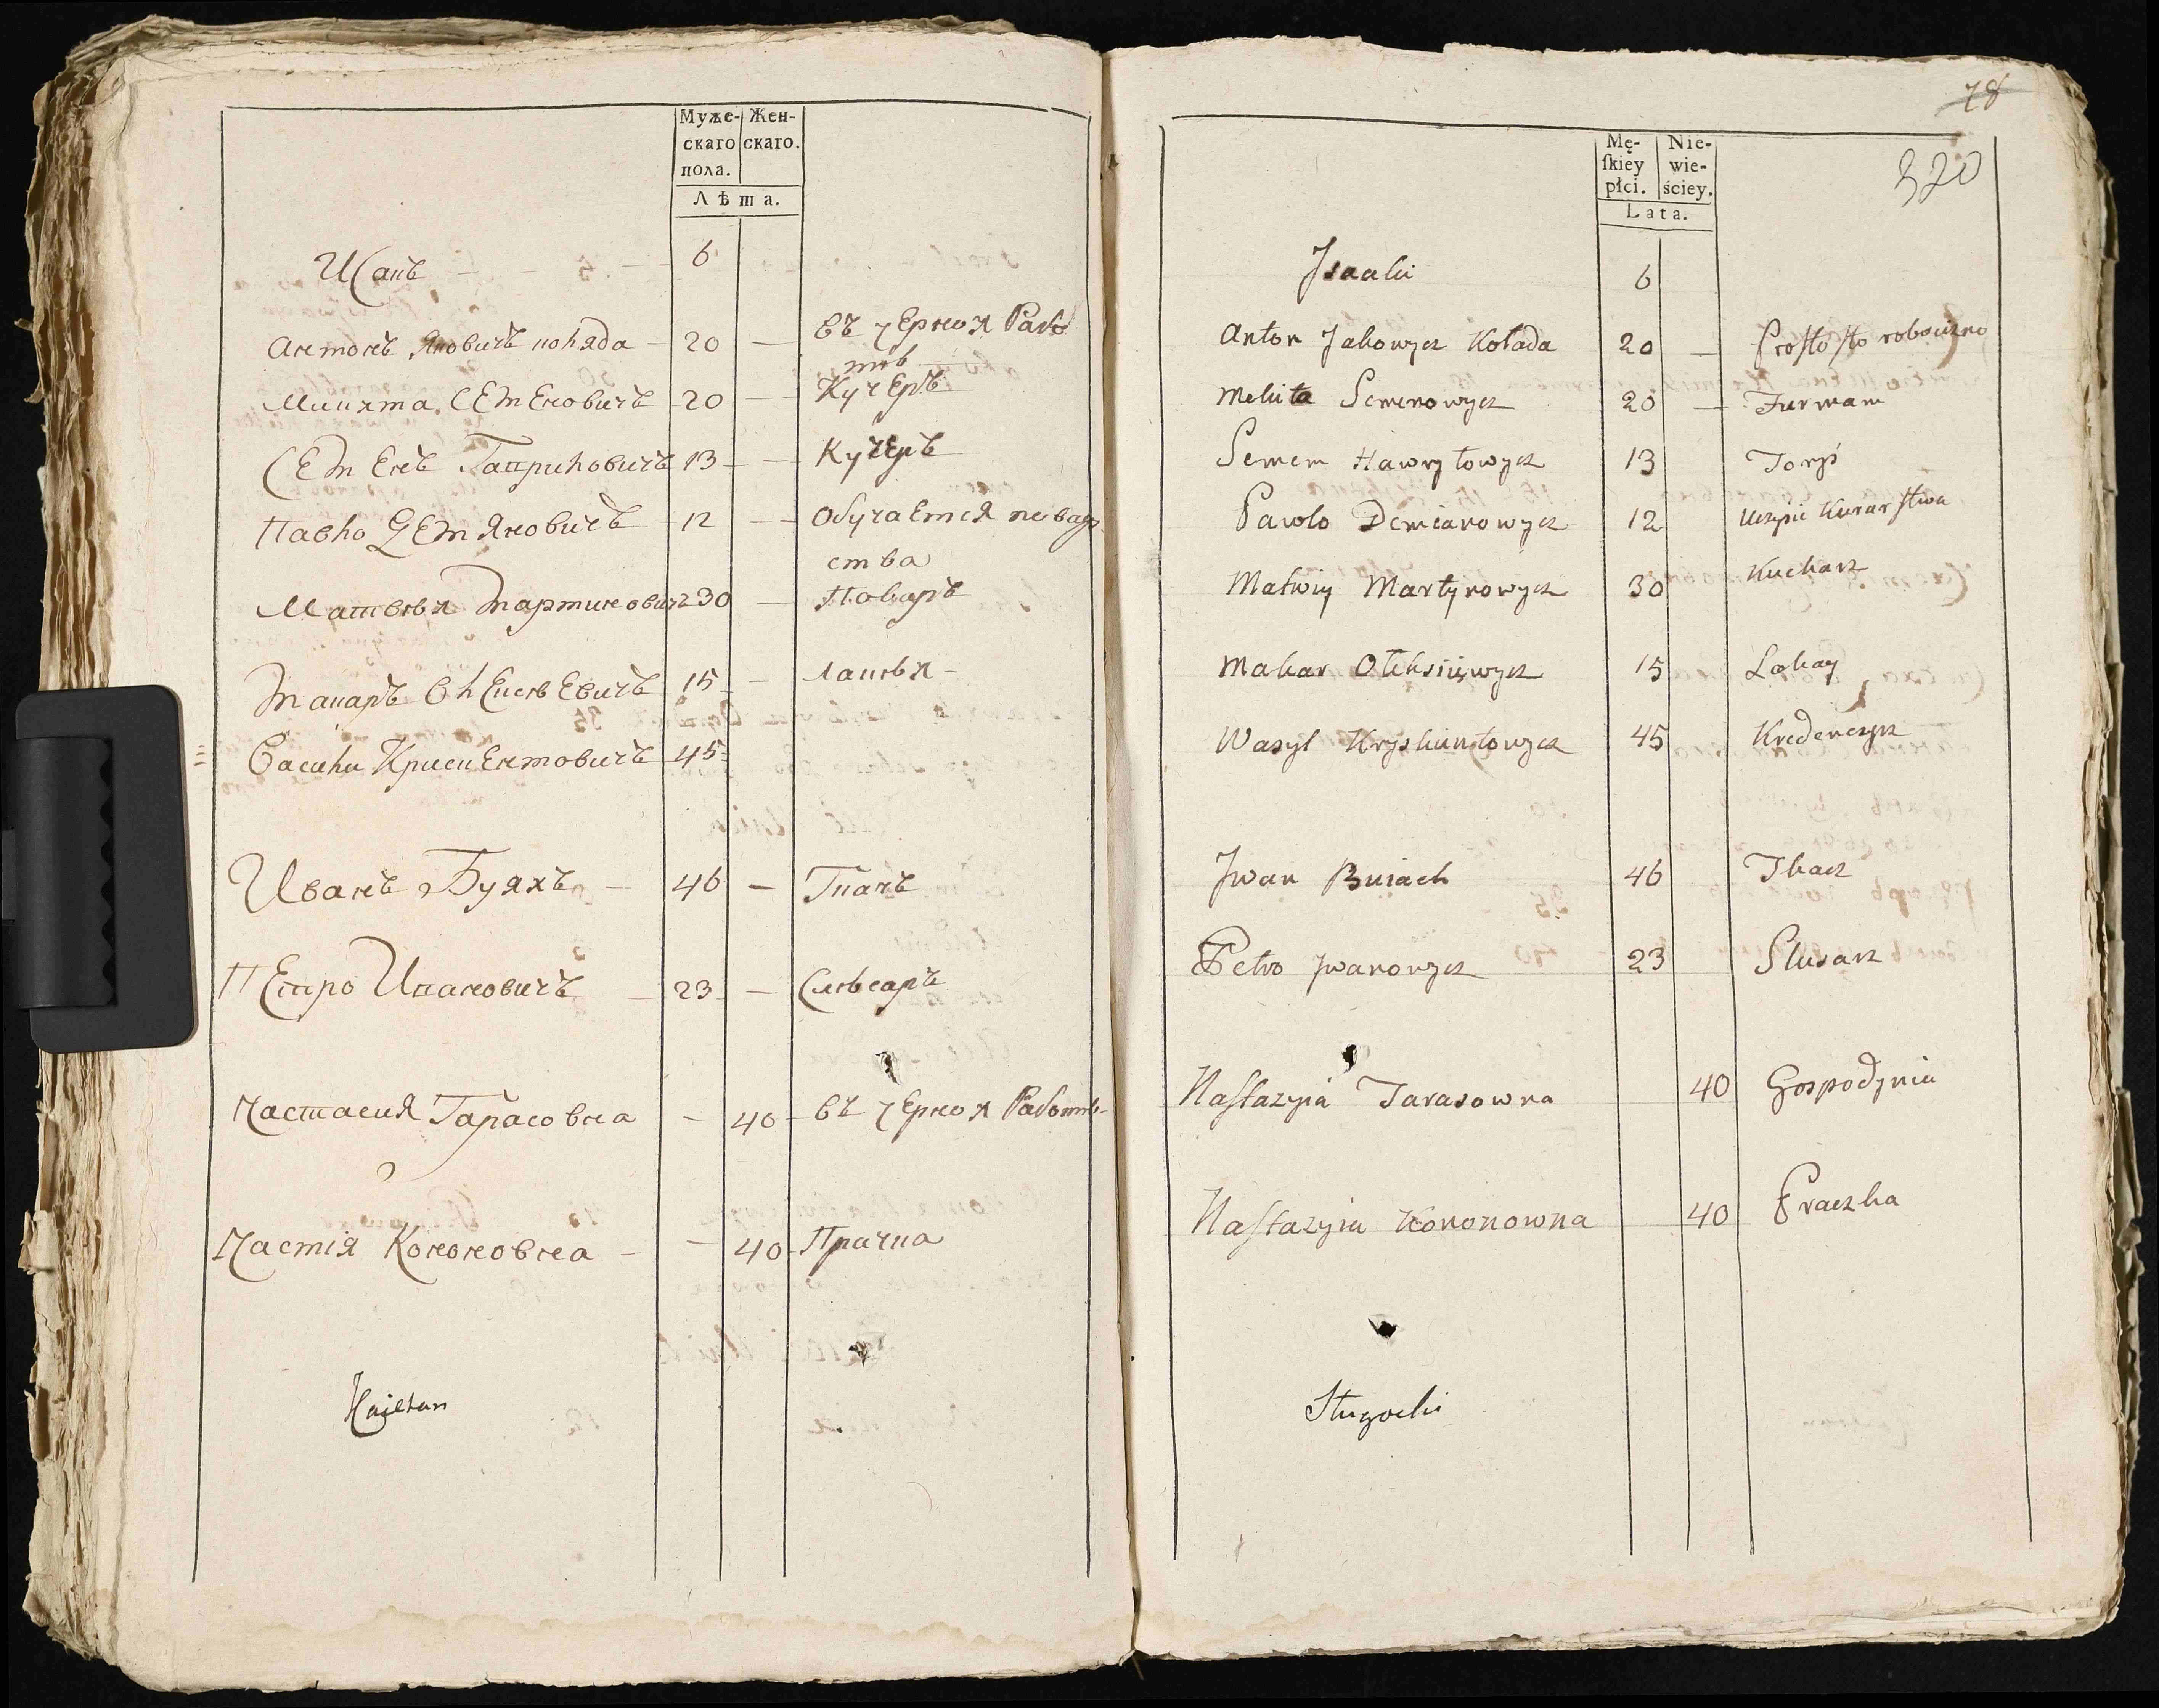 Муже-
скаго
пола.
Жен-
скаго.
Лѣта.
Исакъ - - - 6
Антонъ Яковичъ коляда - 20 — въ черной Рабо
тѣ
Микита Семеновичъ 20 — Кучеръ
Семенъ Гаврилович 13 — Кучеръ
Павло Демяновичъ 12 — Обучается повар
ства
Матвѣй Мартиновичъ 30 — Поваръ
Макаръ Олексѣевичъ 15 — Лакѣй -
Василь Крискентовичъ 45
Иванъ Буяхъ — 46 — Ткачъ
Петро Ивановичъ — 23 — Слѣсаръ
Настасия Тарасовна - 40 въ черной Работѣ
Настія Кононовна - - 40 Прачка
Kajetan
78
320
Mę-
ſkiey
płci.
Nie-
wie-
ściey.
Lata.
Isaaki 6
Anton Jakowycz Kolada 20 —
Mekita Semenowycz 20 — Furman
Semen Hawryłowycz 13
Pawlo Demianowycz 12 Uczęsie Kuharstwa
Matwiy Martynowycz 30 Kucharz
Makar Oleksiiewycz 15 Lokay
Wasyl Kryskuntowycz 45 Kredenczys
Jwan Buiach 46 Tkacz
Petro Jwanowycz 23 Slusarz
Naſtazyia Tarasowna 40 Gospodynia
Naſtazyia Kononowna 40 Praczka